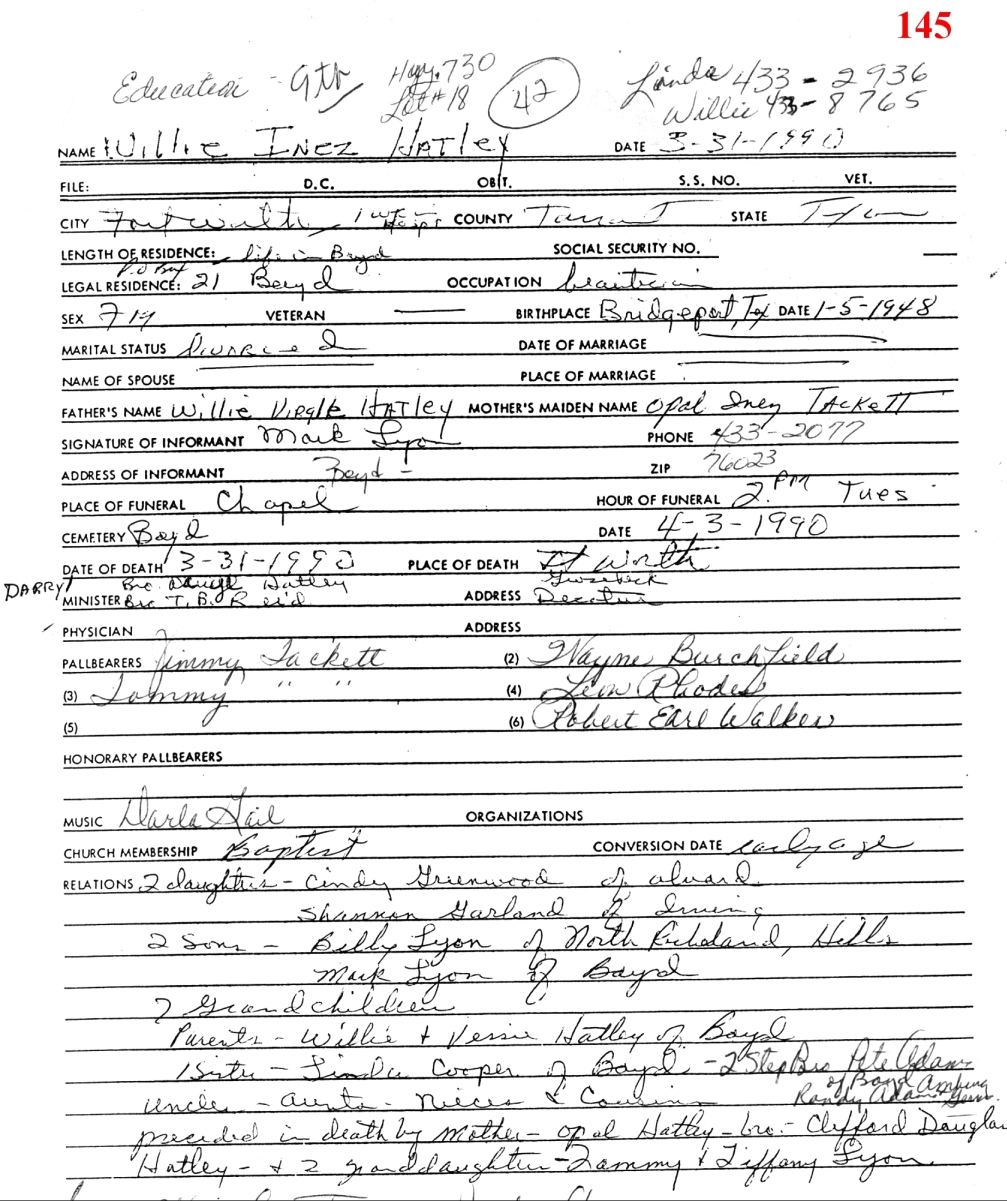 145
Education - 9th Hwy. 730 Linda 433-2936
Lot #18 42 Willie 433-8765
NAME Willie Inez Hatley DATE 3-31-1990
FILE: D.C. OBIT. S.S. NO. VET.
CITY Fort Worth COUNTY Tarrant STATE
LENGTH OF RESIDENCE: life in Boyd SOCIAL SECURITY NO.
P.O. Box
LEGAL RESIDENCE: 21 Boyd OCCUPATION beautician
SEX VETERAN BIRTHPLACE Bridgeport, Tex DATE 1-5-1948
MARITAL STATUS Divorced DATE OF MARRIAGE
NAME OF SPOUSE PLACE OF MARRIAGE
FATHER'S NAME Willie Virgle Hatley MOTHER'S MAIDEN NAME Opal Inez Tackett
SIGNATURE OF INFORMANT Mark Lyon PHONE 433-2077
ADDRESS OF INFORMANT Boyd - ZIP 76023
PLACE OF FUNERAL Chapel HOUR OF FUNERAL 2 PM Tues
CEMETERY Boyd DATE 4-3-1990
DATE OF DEATH 3-31-1990 PLACE OF DEATH Ft Worth
DARRYL Bro. Hatley Groesbeck
MINISTER Bro T. B. Reid ADDRESS Decatur
PHYSICIAN ADDRESS
PALLBEARERS Jimmy Tackett (2) Wayne Burchfield
(3) Tommy " " (4) Leon Rhodes
(5) (6) Robert Earl Walker
HONORARY PALLBEARERS
MUSIC Darla Gail ORGANIZATIONS
CHURCH MEMBERSHIP Baptist CONVERSION DATE early age
RELATIONS 2 daughters - Cindy Greenwood of Alvard
Shannon Garland of Irving
2 Sons - Billy Lyon of North Richland, Hills
Mark Lyon of Boyd
Grandchildren
Parents - Willie + Versie Hatley of Boyd
1 Sister - Linda Cooper of Boyd - 2 Step Bro Pete Adams
of Boyd
Uncle - Aunts - Nieces & Cousins Randy Adams
preceded in death by Mother - Opal Hatley - bro. - Clifford Douglas
Hatley - + 2 granddaughters - Tammy & Tiffany Lyon